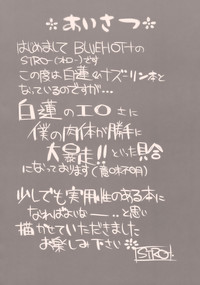 ＊あいさつ＊
はじめまして BLUEMOTHの
STRO-(ストロー)です
この度は白蓮×ナズーリン本と
なっているのですが…
白蓮のエロさに
僕の肉体が勝手に
大暴走!!といった具合
になっております(意味不明)
少しでも実用性のある本に
なればいいなー…と思い
描かせていただきました
お楽しみ下さい
STRO-